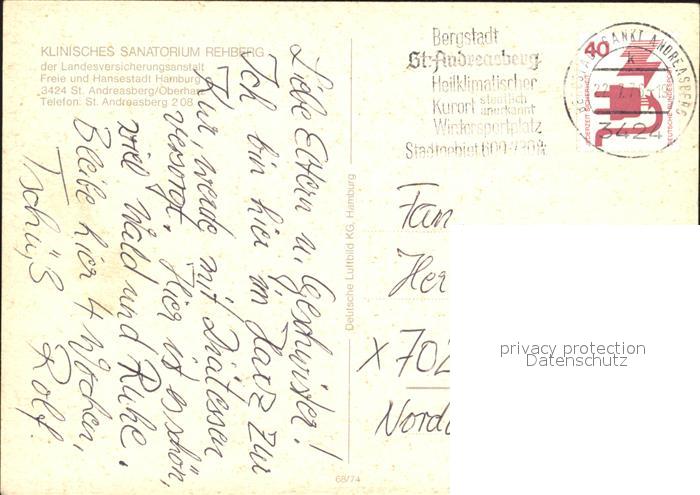 KLINISCHES SANATORIUM REHBERG
der Landesversicherungsanstalt
Freie und Hansestadt Hamburg
3424 St. Andreasberg/Oberharz
Telefon: St. Andreasberg 2 08
Liebe Eltern u. Geschwister!
Ich bin hier im Harz zur
Kur, werde mit Diätessen
versorgt. Hier ist es schön,
viel Wald und Ruhe.
Bleibe hier 4 Wochen,
Tschüß Rolf.
Deutsche Luftbild KG, Hamburg
68/74
Bergstadt
St. Andreasberg
Heilklimatischer
Kurort staatlich anerkannt
Wintersportplatz
Stadtgebiet 600-
BERGSTADT SANKT ANDREASBERG
3424
40
DEUTSCHE BUNDESPOST
JEDERZEIT SICHERHEIT
Fam
Her
X 702
Nord
privacy protection
Datenschutz